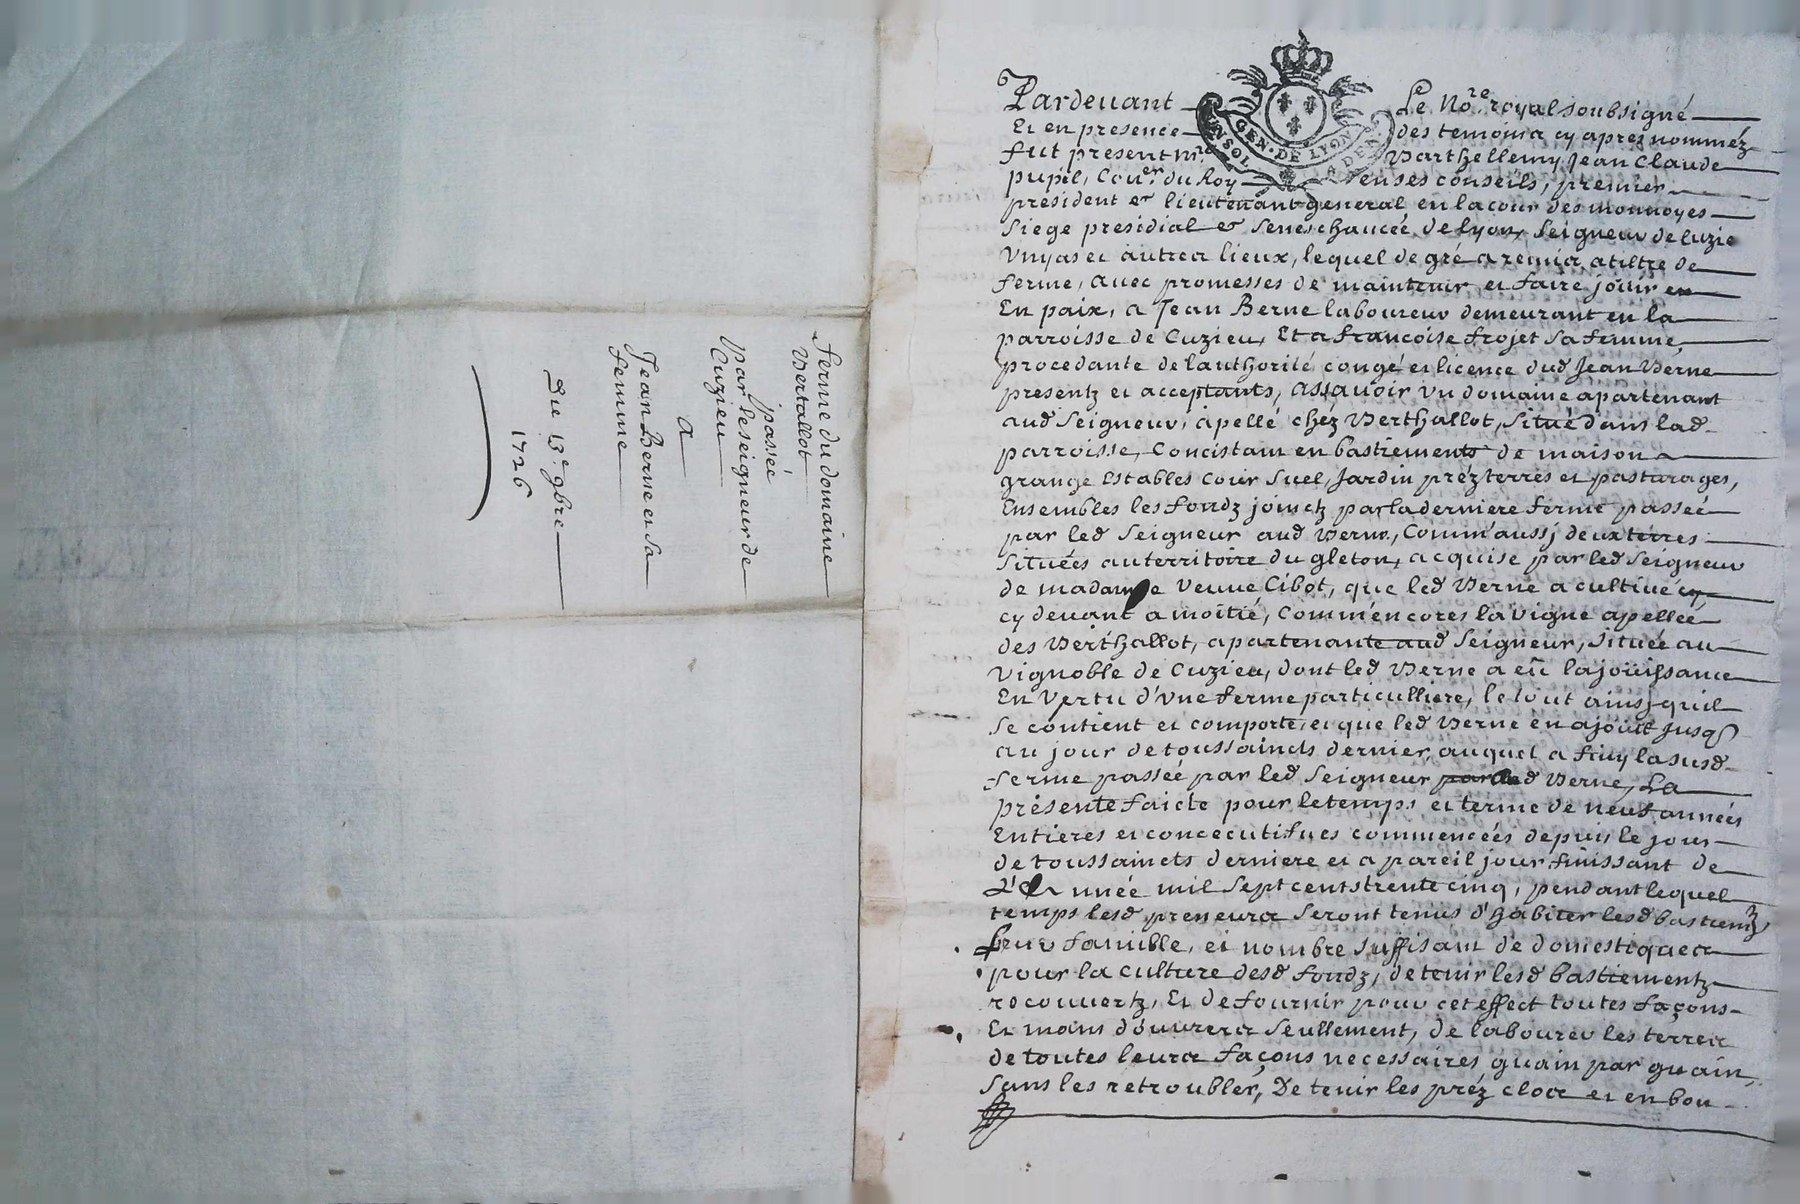 ferme du domaine
Vertallot
passée
par le seigneur de
Cuzieu
A
Jean Berne et sa
femme
Du 13e 9bre
1726
GEN · DE LYON
Pardevant Le No.re royal soubsigné
Et en presence des temoins cy apres nomméz
fut present Mre Barthellemy Jean Claude
pupil, Cou.er du Roy en ses conseils, premier
president et lieutenant general en la cour des monnoyes
siege presidial et seneschaucée de lyon, seigneur de Cuzie
Unyas et autres lieux, lequel de gré a remis a tiltre de
ferme, avec promesses de maintenir et faire jouir en
En paix, a Jean Berne laboureur demeurant en la
parroisse de Cuzieu, Et a francoise frojet sa femme,
procedante de l'authorité congé et licence dud Jean Berne
presentz et acceptants, assavoir un domaine apartenant
aud Seigneur, apellé chéz Berthallot, situé dans lad
parroisse, Concistant en bastiements de maison
grange Estables cour suel, Jardin préz terres et pasturages,
Ensembles les fondz joinctz par la derniere ferme passée
par led Seigneur aud Berne, Comm'aussj deux terres
situées au territoire du gleton, acquise par led Seigneur
de madame Veuve Cibot, que led Berne a cultivé cy
cy devant a moitié, Comm'encores la vigne apellée
des Berthallot, apartenante aud Seigneur, située au
vignoble de Cuzieu, dont led Berne a eü la jouissance
En vertu d'vne ferme particulliere, le tout ainsj quil
se contient et comporte, et que led Berne en a jouit jusq
au jour de toussaincts dernier, auquel a finy la susd
ferme passée par led Seigneur par led Berne, La
presente faicte pour le temps et terme de neuf années
Entieres et concecutifues commencées depuis le jour
de toussaincts derniere et a pareil jour finissant de
L'année mil sept cents trente cinq, pendant lequel
temps lesd preneurs seront tenus d'habiter lesd bastiemtz
leur famille, et nombre suffisant de domestiques
pour la culture desd fondz, de tenir lesd bastiementz
recouvertz, Et de fournir pour cet effect toutes façons
Et mains d'ouvrers seullement, de labourer les terres
de toutes leurs façons necessaires guain par guain,
sans les retroubler, De tenir les préz clos et en bon